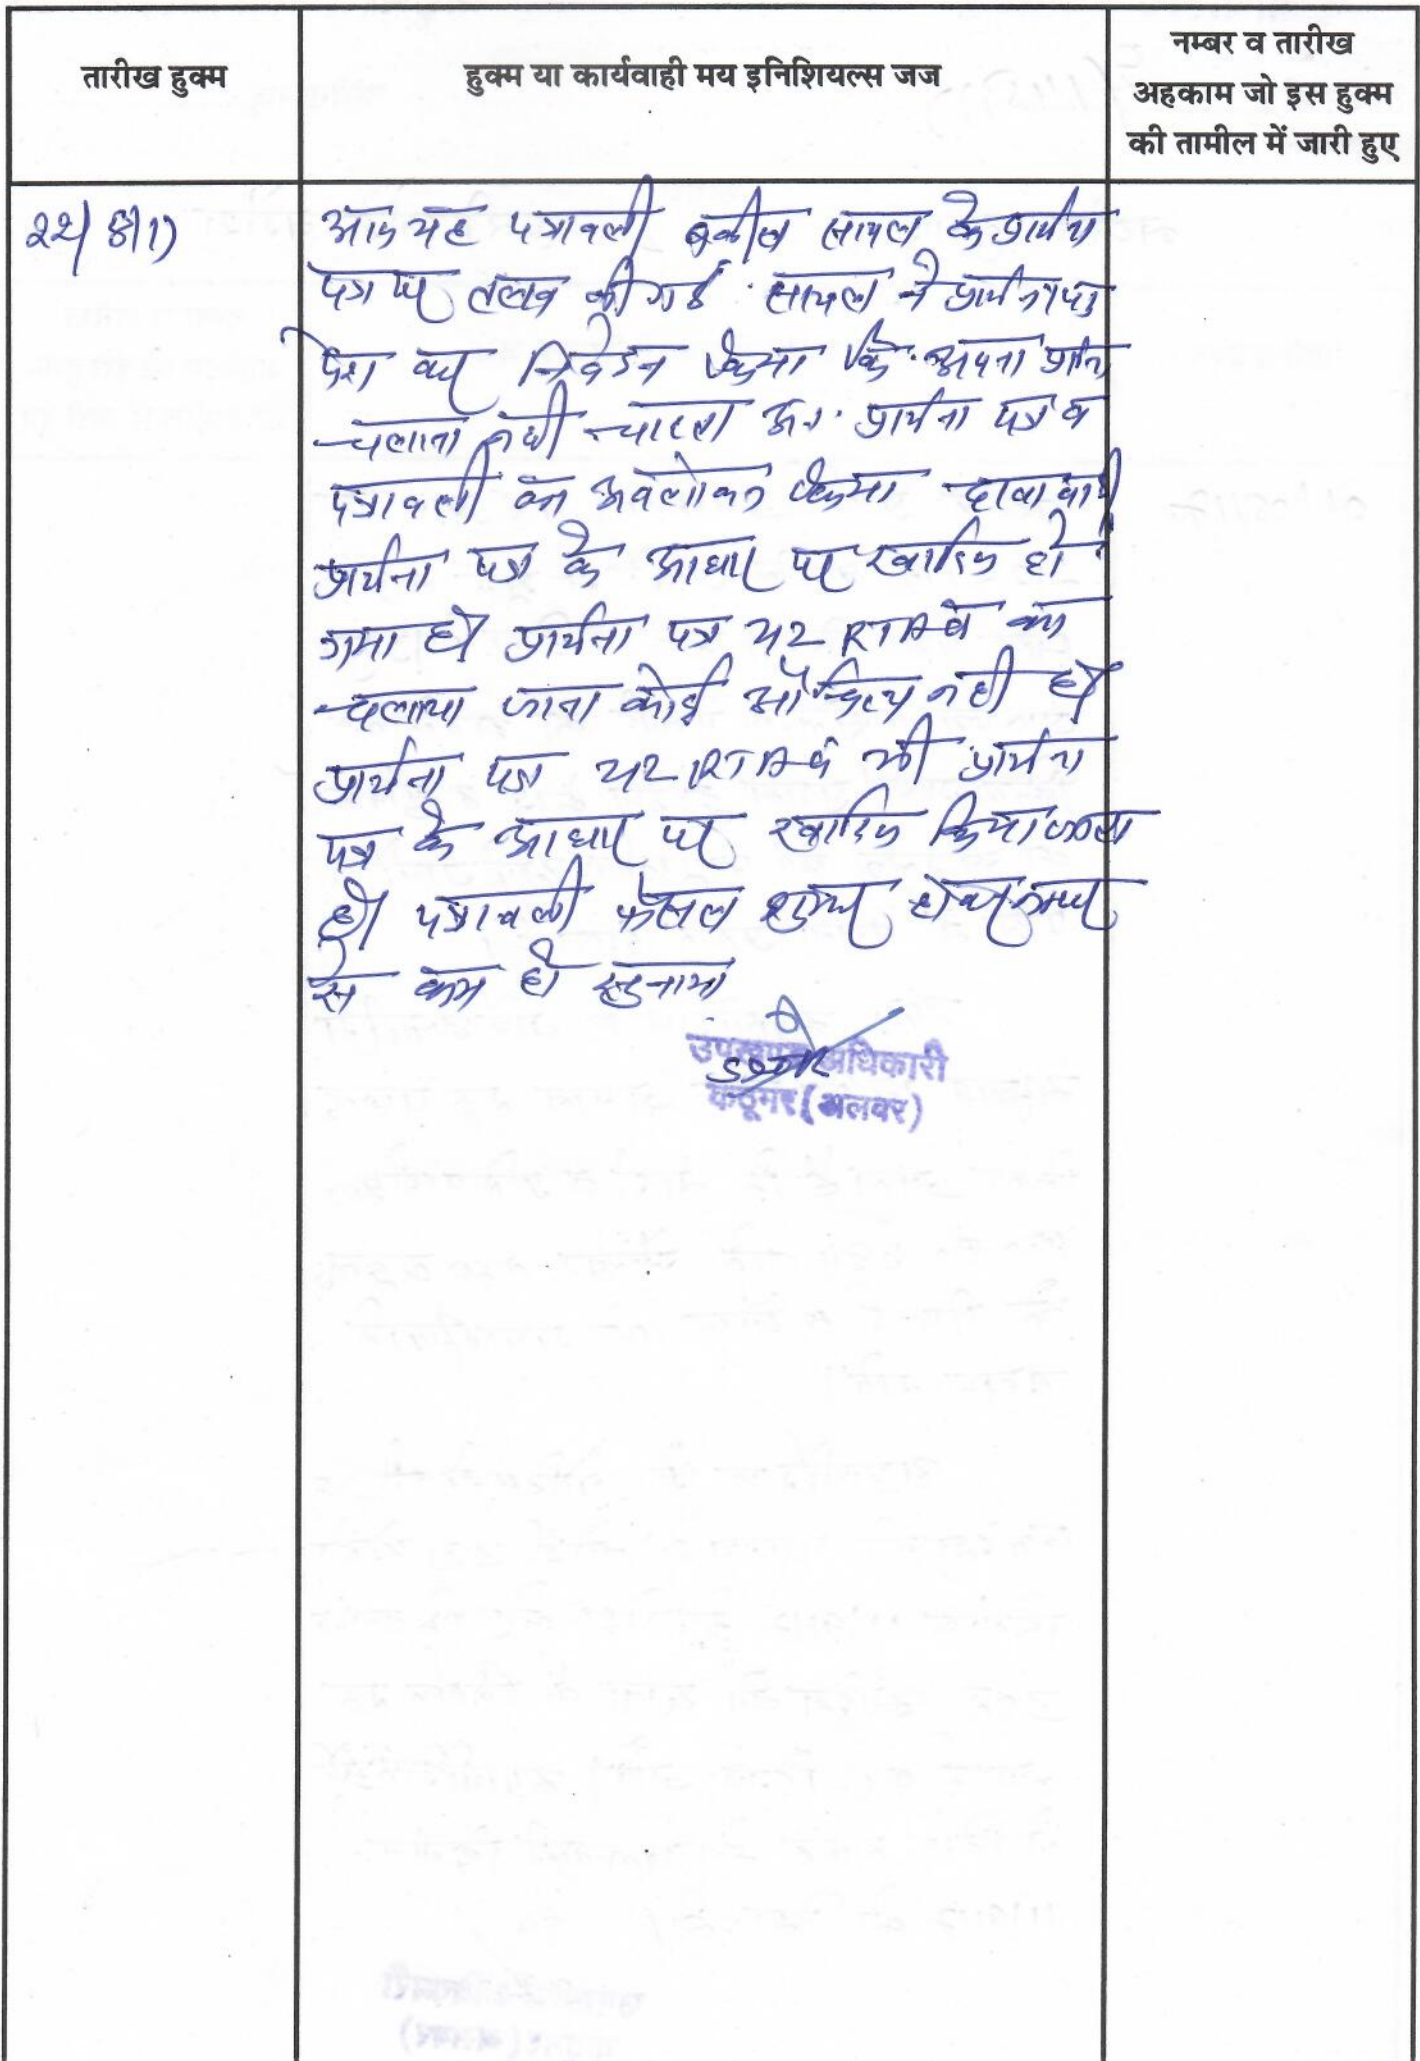 तारीख हुक्म
हुक्म या कार्यवाही मय इनिशियल्स जज
नम्बर व तारीख
अहकाम जो इस हुक्म
की तामील में जारी हुए
आज यह पत्रावली वकील सायल के प्रार्थना
पत्र पर तलब की गई सायल ने प्रार्थना पत्र
पेश कर निवेदन किया कि अपना
चलाना नही चाहता अतः प्रार्थना पत्र व
पत्रावली का अवलोकन किया दावा वादी
प्रार्थना पत्र के आधार पर खारिज हो
गया है प्रार्थना पत्र 212 RTA का
चलाया जाना कोई औचित्य नही है
प्रार्थना पत्र 212 RTA की प्रार्थना
पत्र के आधार पर खारिज किया जाता
है। पत्रावली फैसल शुमार होकर नम्बर
से कम हो सुनाया
उपखण्ड अधिकारी
कठूमर (अलवर)